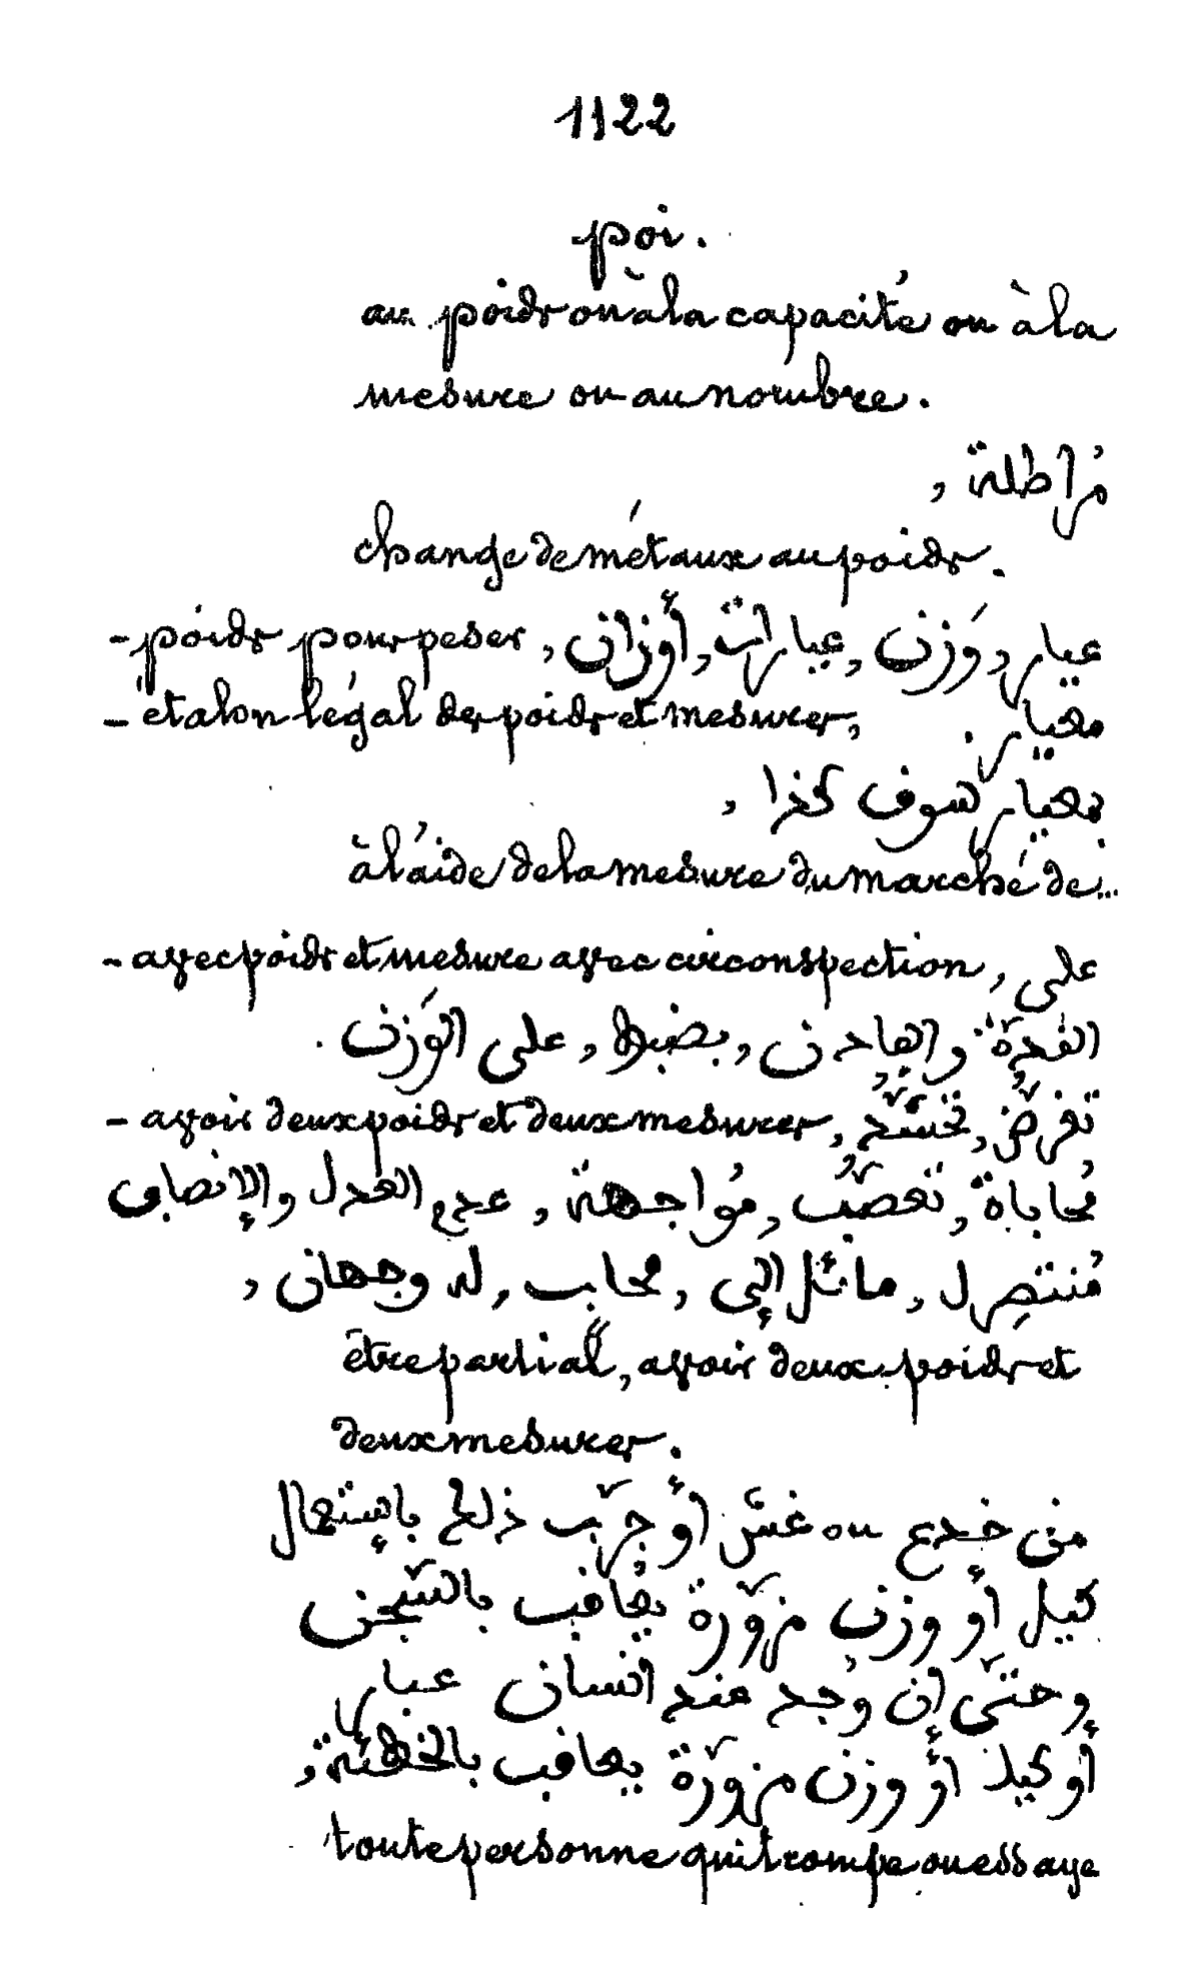 1122
poi.
au poids ou à la capacité ou à la
mesure ou au nombre.
مُراطلة ,
change de métaux au poids.
- poids pour peser, عيار, وَزن, عيارات, أَوزان
- étalon légal des poids et mesures, معيار.
بمعيار سوق كذا ,
à l'aide de la mesure du marché de...
- avec poids et mesure avec circonspection, على
القدرة والقادن, بضبط, على الوَزن.
- avoir deux poids et deux mesures, تَغرّض,
مُحاباة, تَعصّب, مُواجهة, عدم العدل والإنصاف
مُنتصِر ل, مائل إلى, محاب, له وجهان,
être partial, avoir deux poids et
deux mesures.
من خدع ou غشّ أو جرّب ذلك بإستعمال
كيل أو وزن مزوّرة يُعاقب بالسّجن
وحتّى إن وُجد عند انسان عيار
أو كيل أو وزن مزوّرة يعاقب بالخطئة,
toute personne qui trompe ou essaye